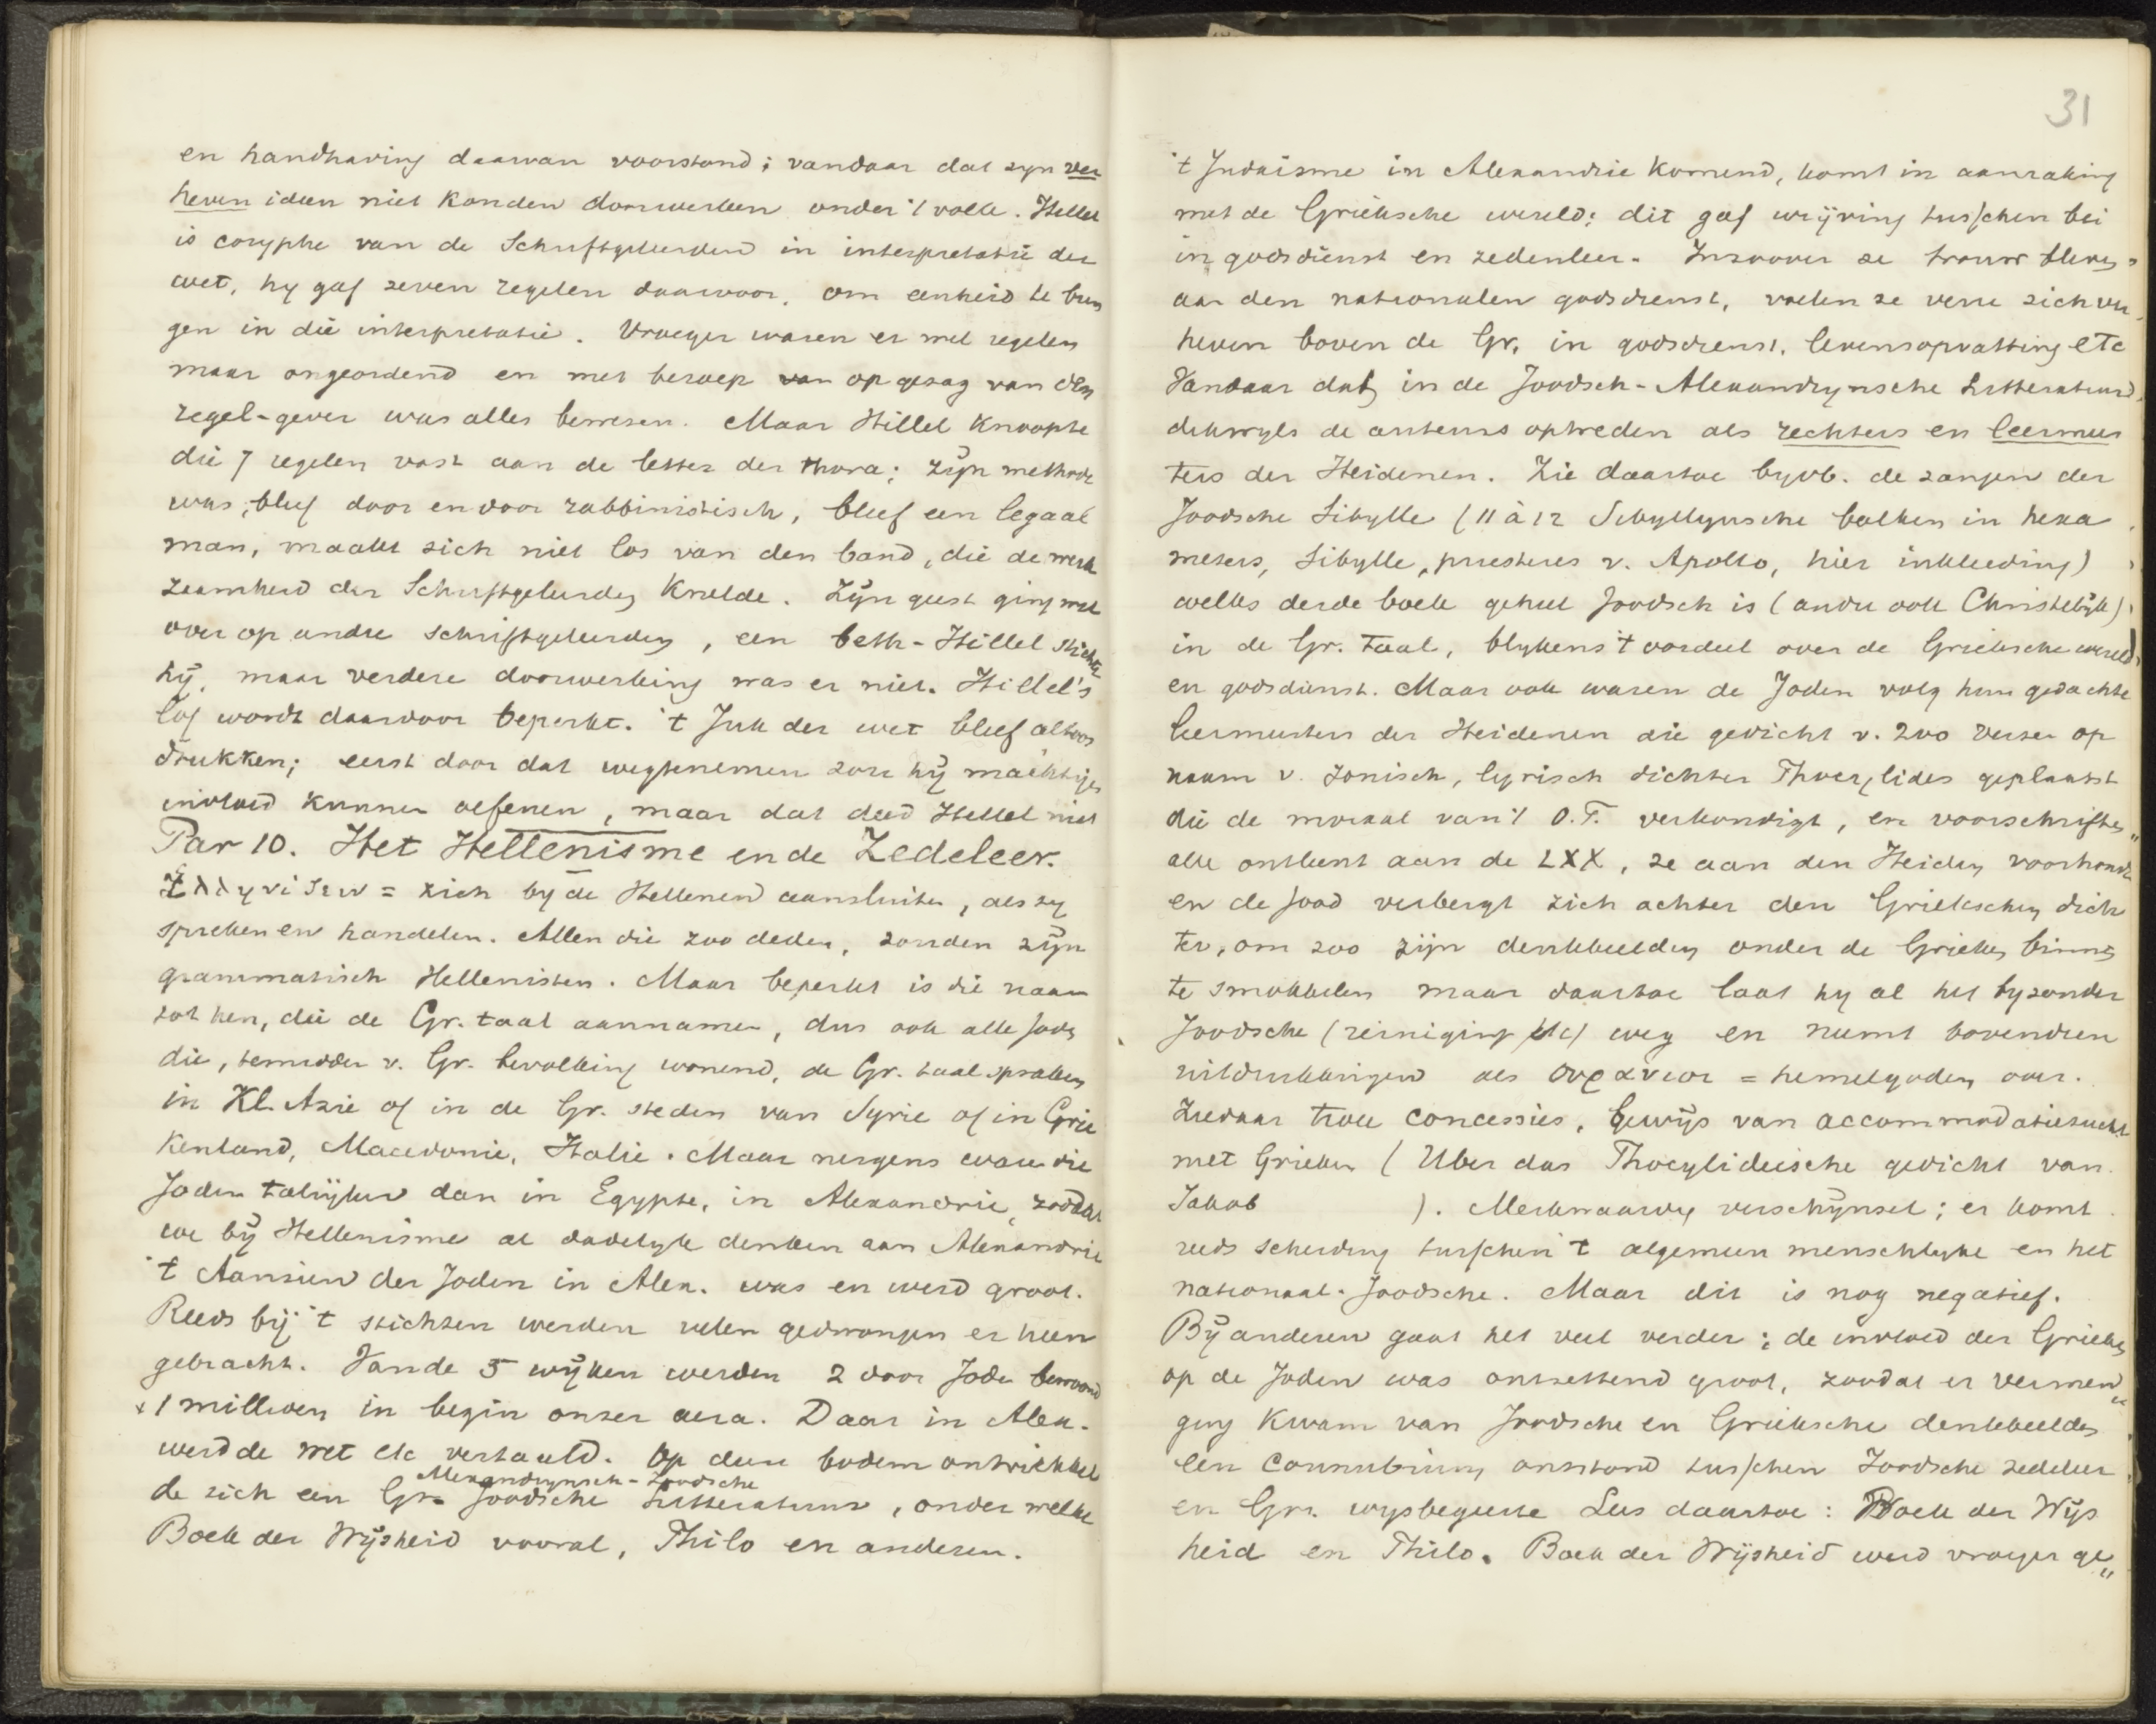 en handhaving daarvan voorstond; vandaar dat zyn ver
heven ideen niet konden doorwerken onder 't volk. Hillel
is coryphe van de Schriftgeleerden in interpretatie der
wet, hy gaf zeven regelen daarvoor, om eenheid te bren
gen in die interpretatie. Vroeger waren er wel regelen
maar ongeordend en met beroep van op gezag van den
regel-gever was alles bewezen. Maar Hillel knoopte
die 7 regelen vast aan de letter der thora; zÿn methode
was, bleef door en door rabbinistisch, bleef een legaal
man, maakt zich niet los van den band, die de werk
zaamheid der Schriftgeleerden knelde. Zÿn geest ging wel
over op andre schriftgeleerden, een beth-Hillel stichtte
hÿ, maar verdere doorwerking was er niet. Hillel's
lof wordt daardoor beperkt. 't Juk der wet bleef altoos
drukken; eerst door dat wegtenemen zou hÿ machtigen
invloed kunnen oefenen, maar dat deed Hillel niet
Par 10. Het Hellenisme en de Zedeleer.
Ἑλληνιζειν = zich by de Hellenen aansluiten, als zy
spreken en handelen. Allen die zoo deden, zouden zÿn
grammatisch Hellenisten. Maar beperkt is die naam
tot hen, die de Gr. taal aannamen, dus ook alle Joden
die, temidden v. Gr. bevolking wonend, de Gr. taal spraken
in Kl. Azie of in de Gr. steden van Syrie of in Grie
kenland, Macedonie, Italie. Maar nergens waren die
Joden talrÿker dan in Egypte, in Alexandrie, zoodat
we bÿ Hellenisme al dadelyk denken aan Alexandrie
't Aanzien der Joden in Alex. was en werd groot.
Reeds bÿ 't stichten werden velen gedwongen er heen
gebracht. Van de 5 wÿken werden 2 door Joden bewoond
± 1 millioen in begin onzer aera. Daar in Alex.
werd de wet etc vertaald. Op dien bodem ontwikkel
Alexandrynsch-Joodsche
de zich een Gr. Joodsche Litteratuur, onder welke
Boek der Wÿsheid vooral, Philo en anderen.
31
't Judaisme in Alexandrie komend, komt in aanraking
met de Grieksche wereld; dit gaf wrÿving tusschen bei
in godsdienst en zedenleer. Inzoover ze trouw bleven
aan den nationalen godsdienst, voelen ze verre zich ver
heven boven de Gr. in godsdienst, levensopvatting etc
Vandaar dat in de Joodsch-Alexandrynsche Litteratuur
dikwyls de auteurs optreden als rechters en leermees
ters der Heidenen. Zie daartoe byvb. de zangen der
Joodsche Sibylle (11 à 12 Sibyllynsche boeken in hexa
meters, Sibylle, priesteres v. Apollo, hier inkleeding)
welks derde boek geheel Joodsch is (andre ook Christelÿk)
in de Gr. taal, blykens 't oordeel over de Grieksche wereld
en godsdienst. Maar ook waren de Joden volg hun gedachte
leermeesters der Heidenen die gedicht v. 200 verzen op
naam v. Ionisch, lyrisch dichter Phocylides geplaatst
die de moraal van 't O.T. verkondigt, en voorschriften
alle ontleent aan de LXX, ze aan den Heiden voorhoudt
en de Jood verbergt zich achter den Griekschen dich
ter, om zoo zijn denkbeelden onder de Grieken binnen
te smokkelen maar daartoe laat hy al het byzonder
Joodsche (reiniging etc) weg en neemt bovendien
uitdrukkingen als ουρανιοι = hemelgoden over.
Ziedaar twee concessies, bewÿs van accommodatiezucht
met Grieken (Uber das Phocylideische gedicht van
Jakob ). Merkwaardig verschÿnsel; er komt
reeds scheiding tusschen 't algemeen menschlyke en het
nationaal-Joodsche. Maar dit is nog negatief.
Bÿ anderen gaat het veel verder; de invloed der Grieken
op de Joden was ontzettend groot, zoodat er vermen
ging kwam van Joodsche en Grieksche denkbeelden
een Connubium ontstond tusschen Joodsche zedeleer
en Gr. wysbegeerte Lees daartoe: Boek der Wÿs
heid en Philo. Boek der Wÿsheid werd vroeger ge